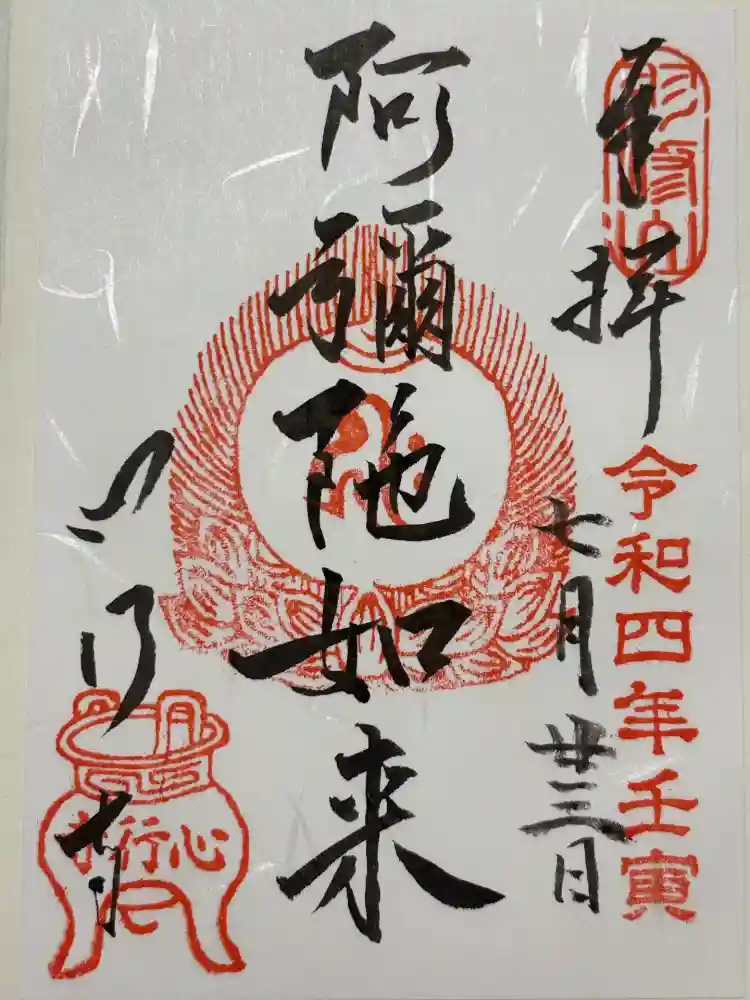 奉拝
令和四年壬寅
七月廿三日
阿彌陀如来
心行寺